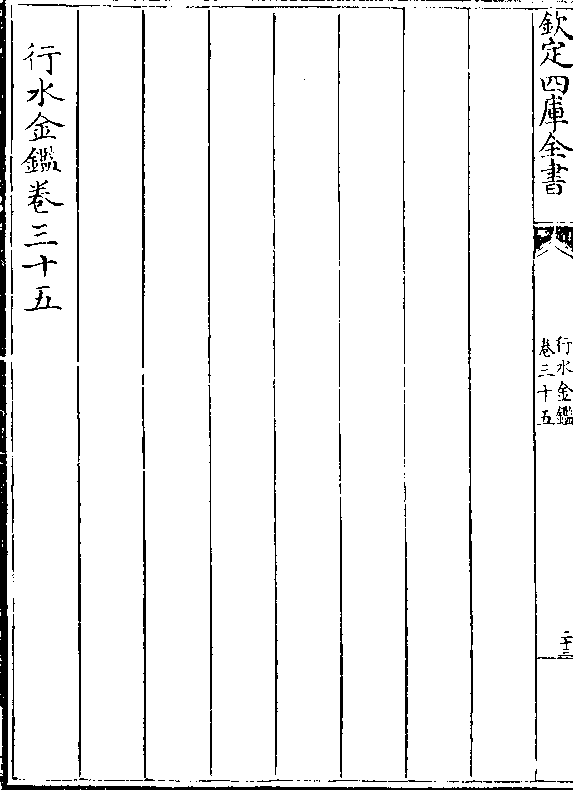 欽定四庫全書
行水金鑑
卷三十五
二十三
行水金鑑卷三十五